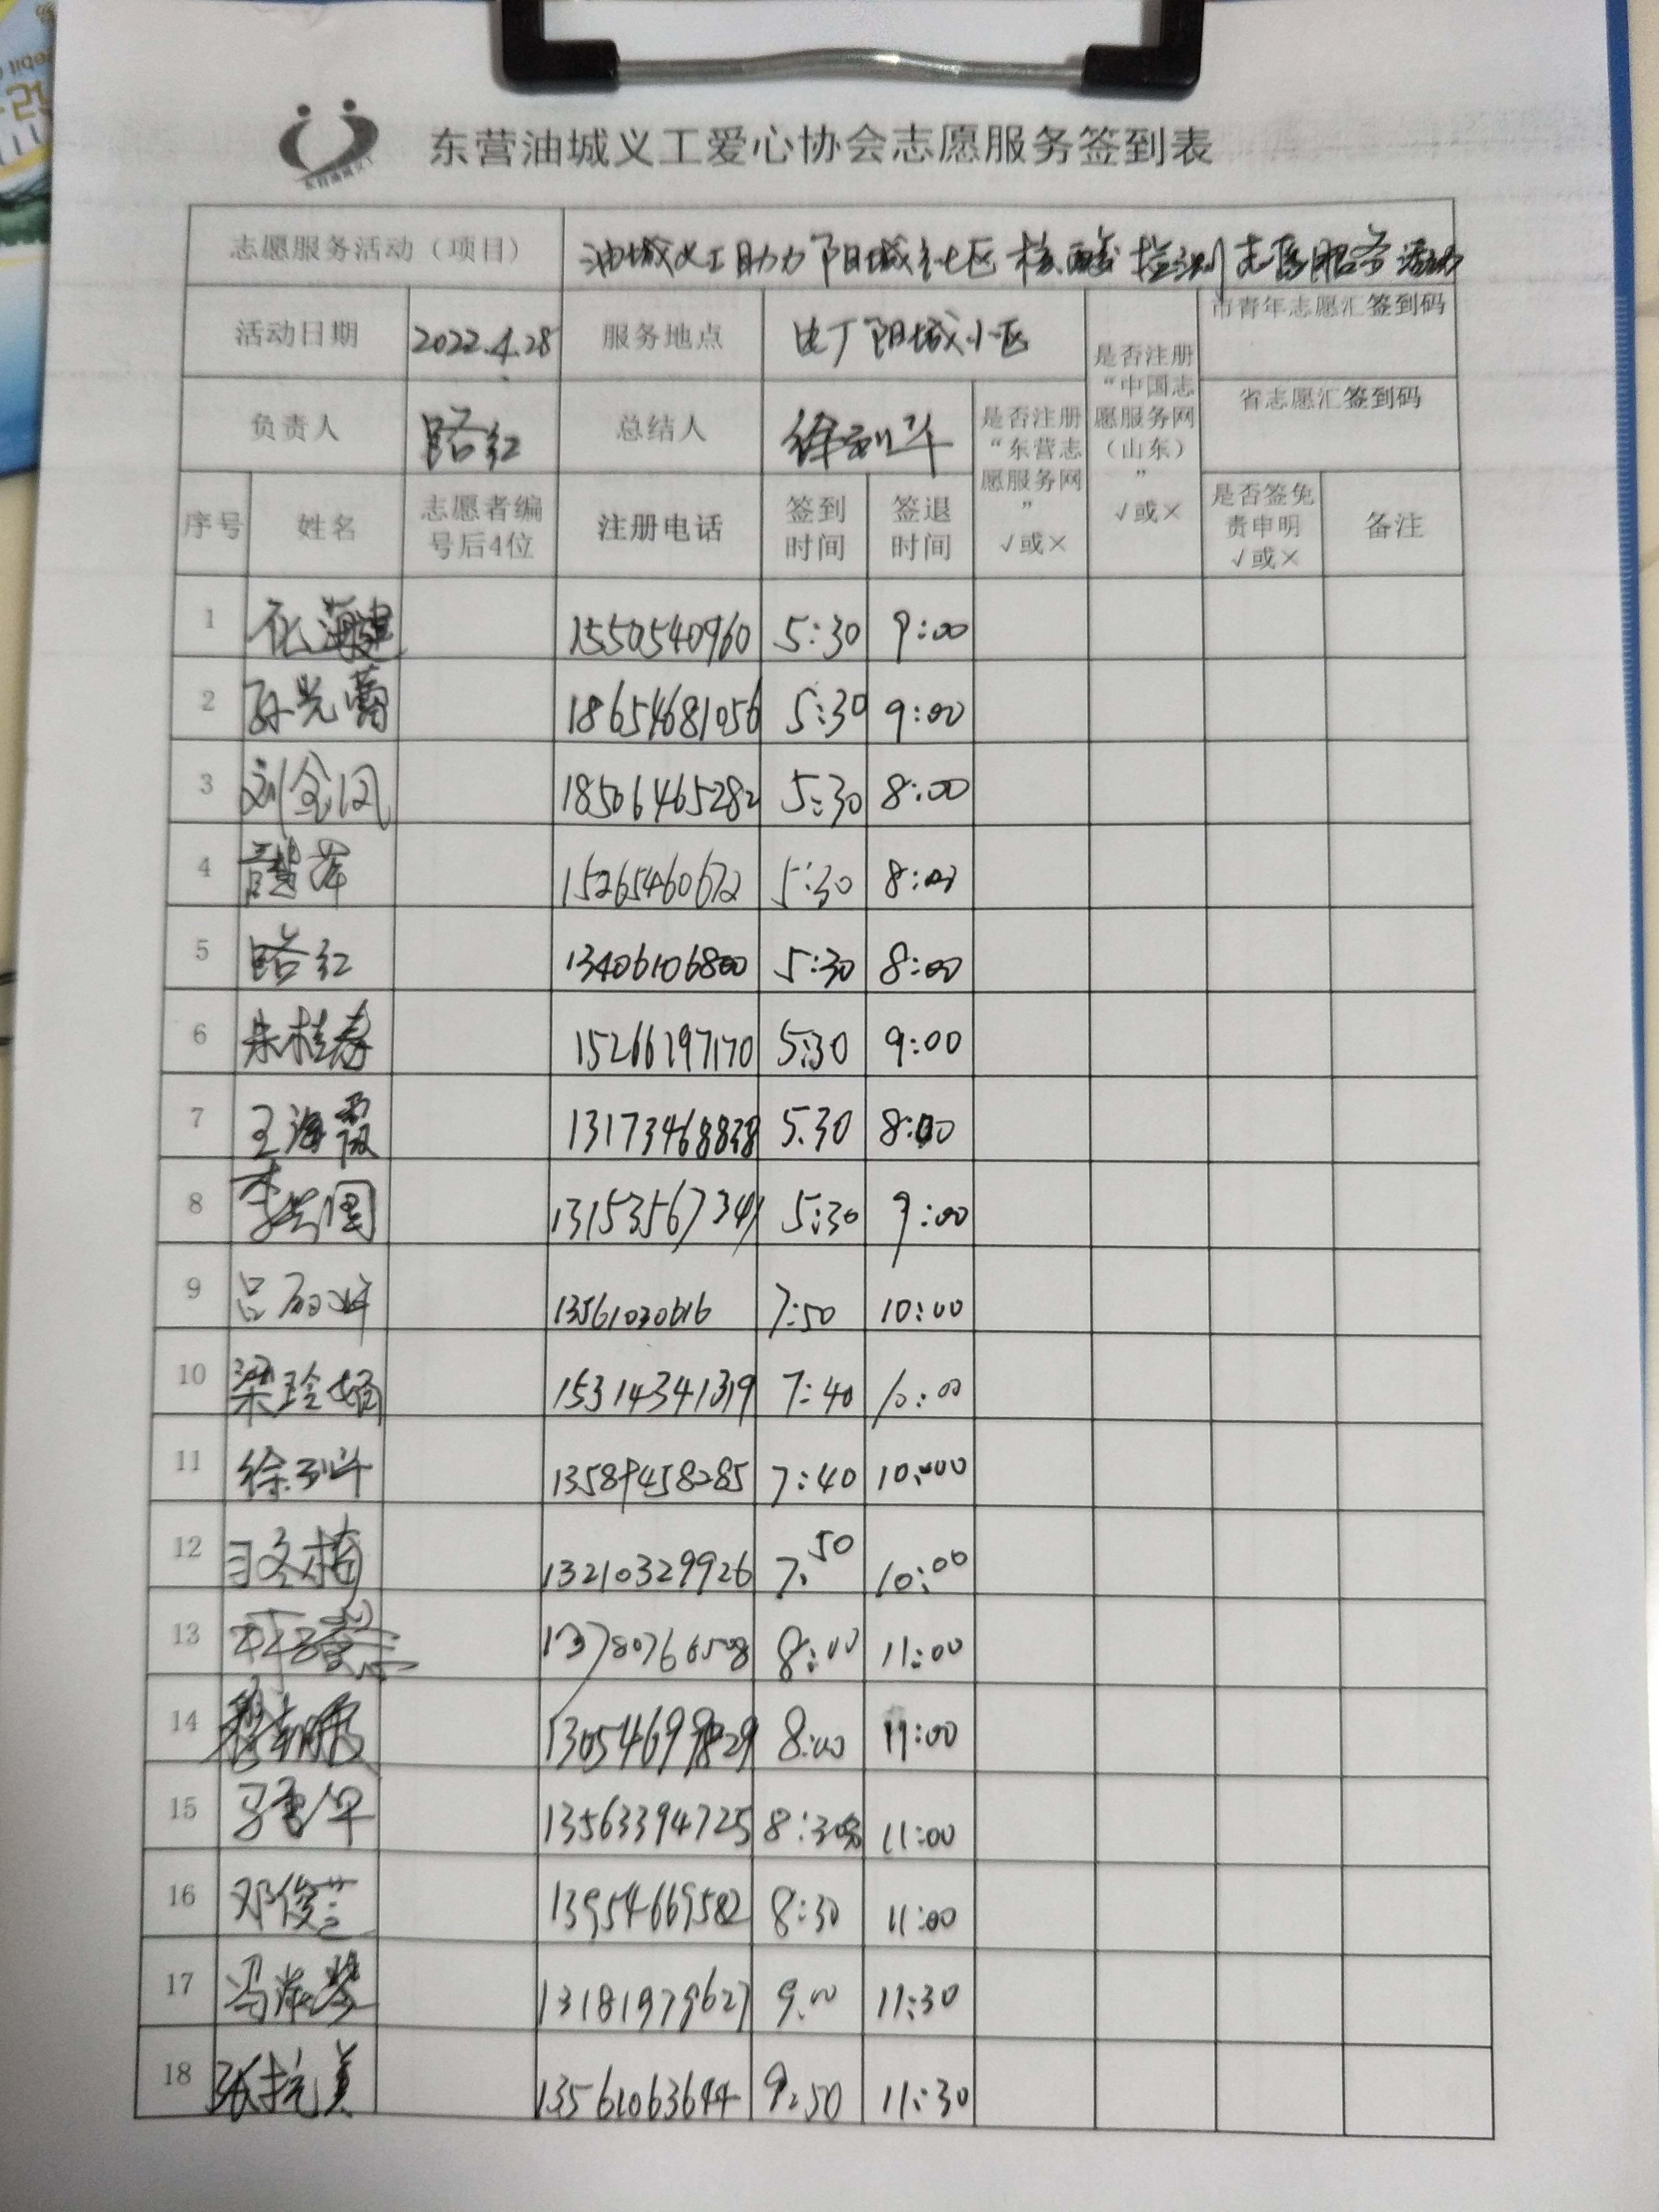 东营油城义工爱心协会志愿服务签到表
志愿服务活动（项目） 油城义工助力阳城社区核酸检测志愿服务活动
活动日期 2022.4.28 服务地点 电厂阳城小区 是否注册“中国志愿服务网（山东）” √或× 市青年志愿汇签到码
负责人 路红 总结人 徐 是否注册“东营志愿服务网” √或× 省志愿汇签到码
序号 姓名 志愿者编号后4位 注册电话 签到时间 签退时间 是否签免责申明 √或× 备注
1 海建 1550540960 5:30 9:00
2 孙光 18654681056 5:30 9:00
3 刘金凤 18506465282 5:30 8:00
4 15265460672 5:30 8:00
5 路红 13406106800 5:30 8:00
6 朱桂春 15266197170 5:30 9:00
7 王海霞 13173468838 5.30 8:00
8 李 13153567341 5:30 9:00
9 吕 13561030616 7:50 10:00
10 梁玲娟 15314341319 7:40 10:00
11 徐 13589458285 7:40 10:00
12 冬梅 13210329926 7:50 10:00
13 13780766508 8:00 11:00
14 13054699829 8:00 11:00
15 马 13563394725 8:30 11:00
16 邓俊兰 13954669582 8:30 11:00
17 冯 琴 13181979627 9:00 11:30
18 张 美 13561063644 9:50 11:30